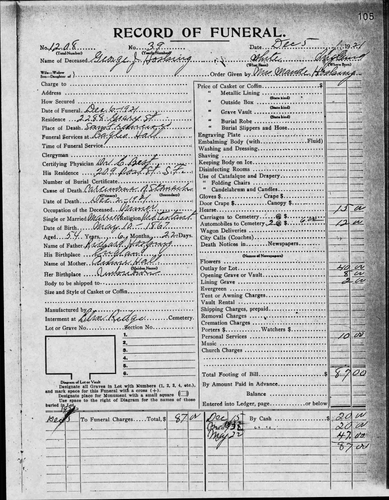 105
RECORD OF FUNERAL.
No. 1208
No. 39
Date Dec 5 1921
Name of Deceased George J. Hosking
White
Wife - Widow
Son - Daughter of
Order Given by Mrs
Charge to
Address
How Secured
Date of Funeral Dec 6 1921
Residence 2288 Geary St
Place of Death San Francisco
Funeral Services at
Time of Funeral Service
Clergyman
Certifying Physician
His Residence 209 Post St S.F.
Number of Burial Certificate
Cause of Death
Date of Death Dec 2 1921
Occupation of the Deceased Miner
Single or Married Married Religion
Date of Birth May 10 1867
Aged 54 Years 6 Months 22 Days
Name of Father Hosking
His Birthplace England
Name of Mother Hall
(Maiden Name)
Her Birthplace Unknown
Body to be shipped to
Size and Style of Casket or Coffin
Manufactured by
Interment at Cemetery
Lot or Grave No. Section No.
1
2
3
4
5
6
Diagram of Lot or Vault
Designate all Graves in Lot with Numbers (1, 2, 3, 4, etc.)
and mark space for this Funeral with a cross (+).
Designate place for Monument with a small square
Use space to the right of Diagram for the names of those
buried in Lot.
Price of Casket or Coffin
" Metallic Lining
(State kind)
" Outside Box
(State kind)
" Grave Vault
(State kind)
" Burial Robe
(State kind)
" Burial Slippers and Hose
Engraving Plate
Embalming Body (with Fluid)
Washing and Dressing
Shaving
Keeping Body on Ice
Disinfecting Rooms
Use of Catafalque and Drapery
" Folding Chairs
" Candelabrum and Candles
Gloves $ Crape $
Door Crape $ Canopy $
Hearse 15 00
Carriages to Cemetery @ $
Automobiles to Cemetery 2 @ $ 6.00 12 00
Wagon Deliveries
City Calls (Coaches)
Death Notices in Newspapers
(Names of Newspapers)
Flowers
Outlay for Lot 40 00
Opening Grave or Vault 8 00
Lining Grave 2 00
Evergreen
Tent or Awning Charges
Vault Rental
Shipping Charges, prepaid
Removal Charges
Cremation Charges
Porters $ Watchers $
Personal Services 10 00
Music
Church Charges
Total Footing of Bill $ 87.00
By Amount Paid in Advance
Balance
Entered into Ledger, page or below.
To Funeral Charges, Total, $ 87 00
Dec By Cash 20 00
20 00
May 22 47 00
87 00